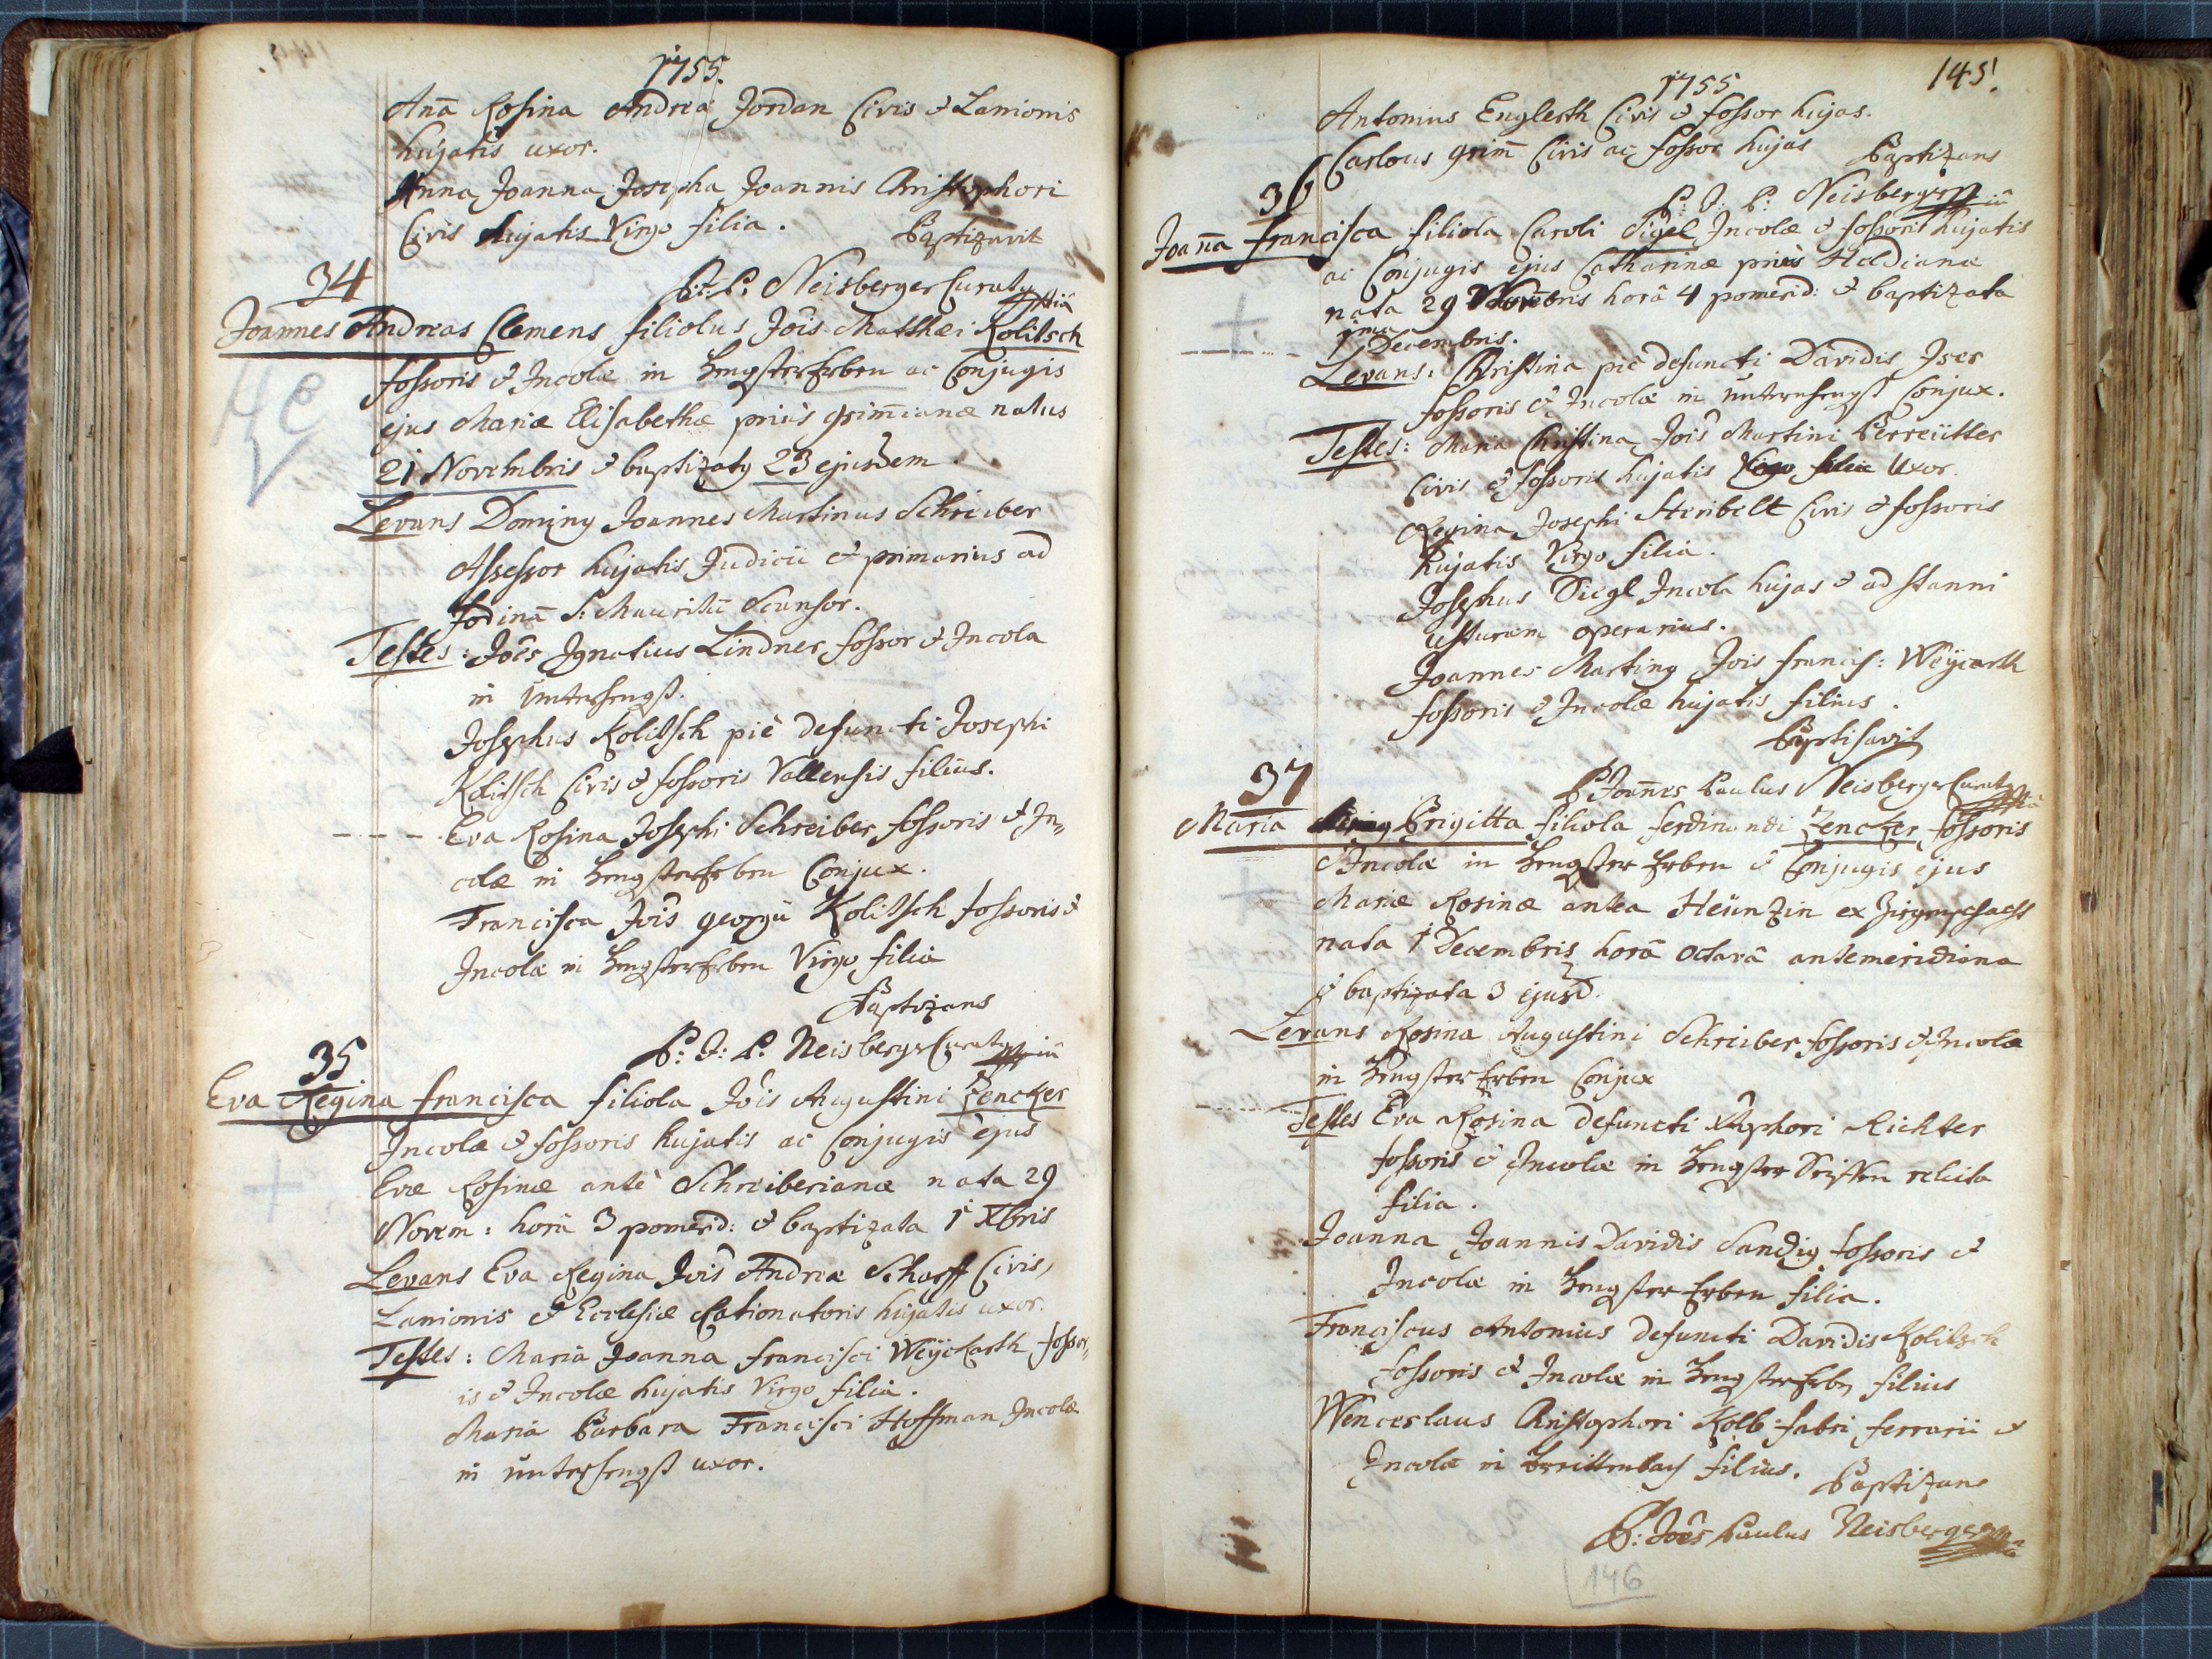 1755.
Anna Rosina Andreæ Jordan Civis & Lanionis
hujatis uxor.
Anna Joanna Josepha Joannis Christophori
Civis hujatis Virgo filia. Baptizavit
P: J: P: Neisberger Curatg
34
Joannes Andreas Clemens filiolus Jois Matthæi Kolitsch
fossoris & Incolæ in HengsterErben ac Conjugis
ejus Mariæ Elisabethæ prius Grimianæ natus
21 Novembris & baptizatg 23 ejusdem.
Levans Doming Joannes Martinus Schreiber
Assessor hujatis Judicii & primarius ad
fodinā S: Mauritii Scansor.
Testes: Joes Ignatius Lindner fossor & Incola
in Unterhengst.
Josephus Kolitsch piè defuncti Josephi
Kolitsch Civis & fossoris Vallensis filius.
Eva Rosina Josephi Schreiber fossoris & In=
colæ in HengsterErben Conjux.
Francisca Jois Georgii Kolitsch fossoris &
Incolæ in HengsterErben Virgo filia
Baptizans
P: J: P: Neisberger Curatg
35
Eva Regina Francisca filiola Jois Augustini Zencker
Incolæ & fossoris hujatis ac Conjugis ejus
Evæ Rosinæ antè Schreiberianæ nata 29
Novem: horâ 3 pomerid: & baptizata 1 Xbris
Levans Eva Regina Jois Andreæ Scharff Civis,
Lanionis & Ecclesiæ Rationatoris hujatis uxor.
Testes: Maria Joanna Francisci Weÿckarth fossor=
is & Incolæ hujatis Virgo filia.
Maria Barbara Francisci Hoffman Incolæ
in Unterhengst uxor.
1755
145.
Antonius Englerth Civis & fossor hujas.
Carlous Grim̄ Civis ac fossor hujas Baptizans
P: J: P: Neisberger
36
Joan̄a Francisca filiola Caroli Sigel Incolæ & fossoris hujatis
ac Conjugis ejus Catharinæ priùs Heldianæ
nata 29 Novembris horâ 4 pomerid: & baptizata
1ma Decembris.
Levans: Christina piè defuncti Davidis Iser
fossoris & Incolæ in Unternhengst Conjux.
Testes: Maria Christina Jois Martini Perreütter
Civis & fossoris hujatis Virgo filia Uxor.
Regina Josephi Steribelt Civis & fossoris
hujatis Virgo filia.
Josephus Siegl Incola hujas & ad stanni
usturam operarius.
Joannes Marting Jois Francis: Weÿcarth
fossoris & Incolæ hujatis filius.
Baptisavit
P Joan̄es Paulus Neisberger Curatg
37
Maria Brigitta filiola Ferdinandi Zencker fossoris
& Incolæ in Hengster Erben & Conjugis ejus
Mariæ Rosinæ antea Heünzin ex
nata 1 Decembris horâ octavâ antemeridiana
& baptizata 3 ejusd.
Levans Rosina Augustini Schreiber fossoris & Incolæ
in HengsterErben Conjux
Testes Eva Rosina defuncti Xstophori Richter
fossoris & Incolæ in Hengster Seiffen relicta
filia.
Joanna Joannis Davidis Sandig fossoris &
Incolæ in Hengster Erben filia.
Franciscus Antonius defuncti Davidis Kolitzsch
fossoris & Incolæ in HengsterErbn filius
Wenceslaus Christophori Kolb fabri ferrarii &
Incolæ in Breittenbach filius. Baptizans
P: Joes Paulus Neisberger
146